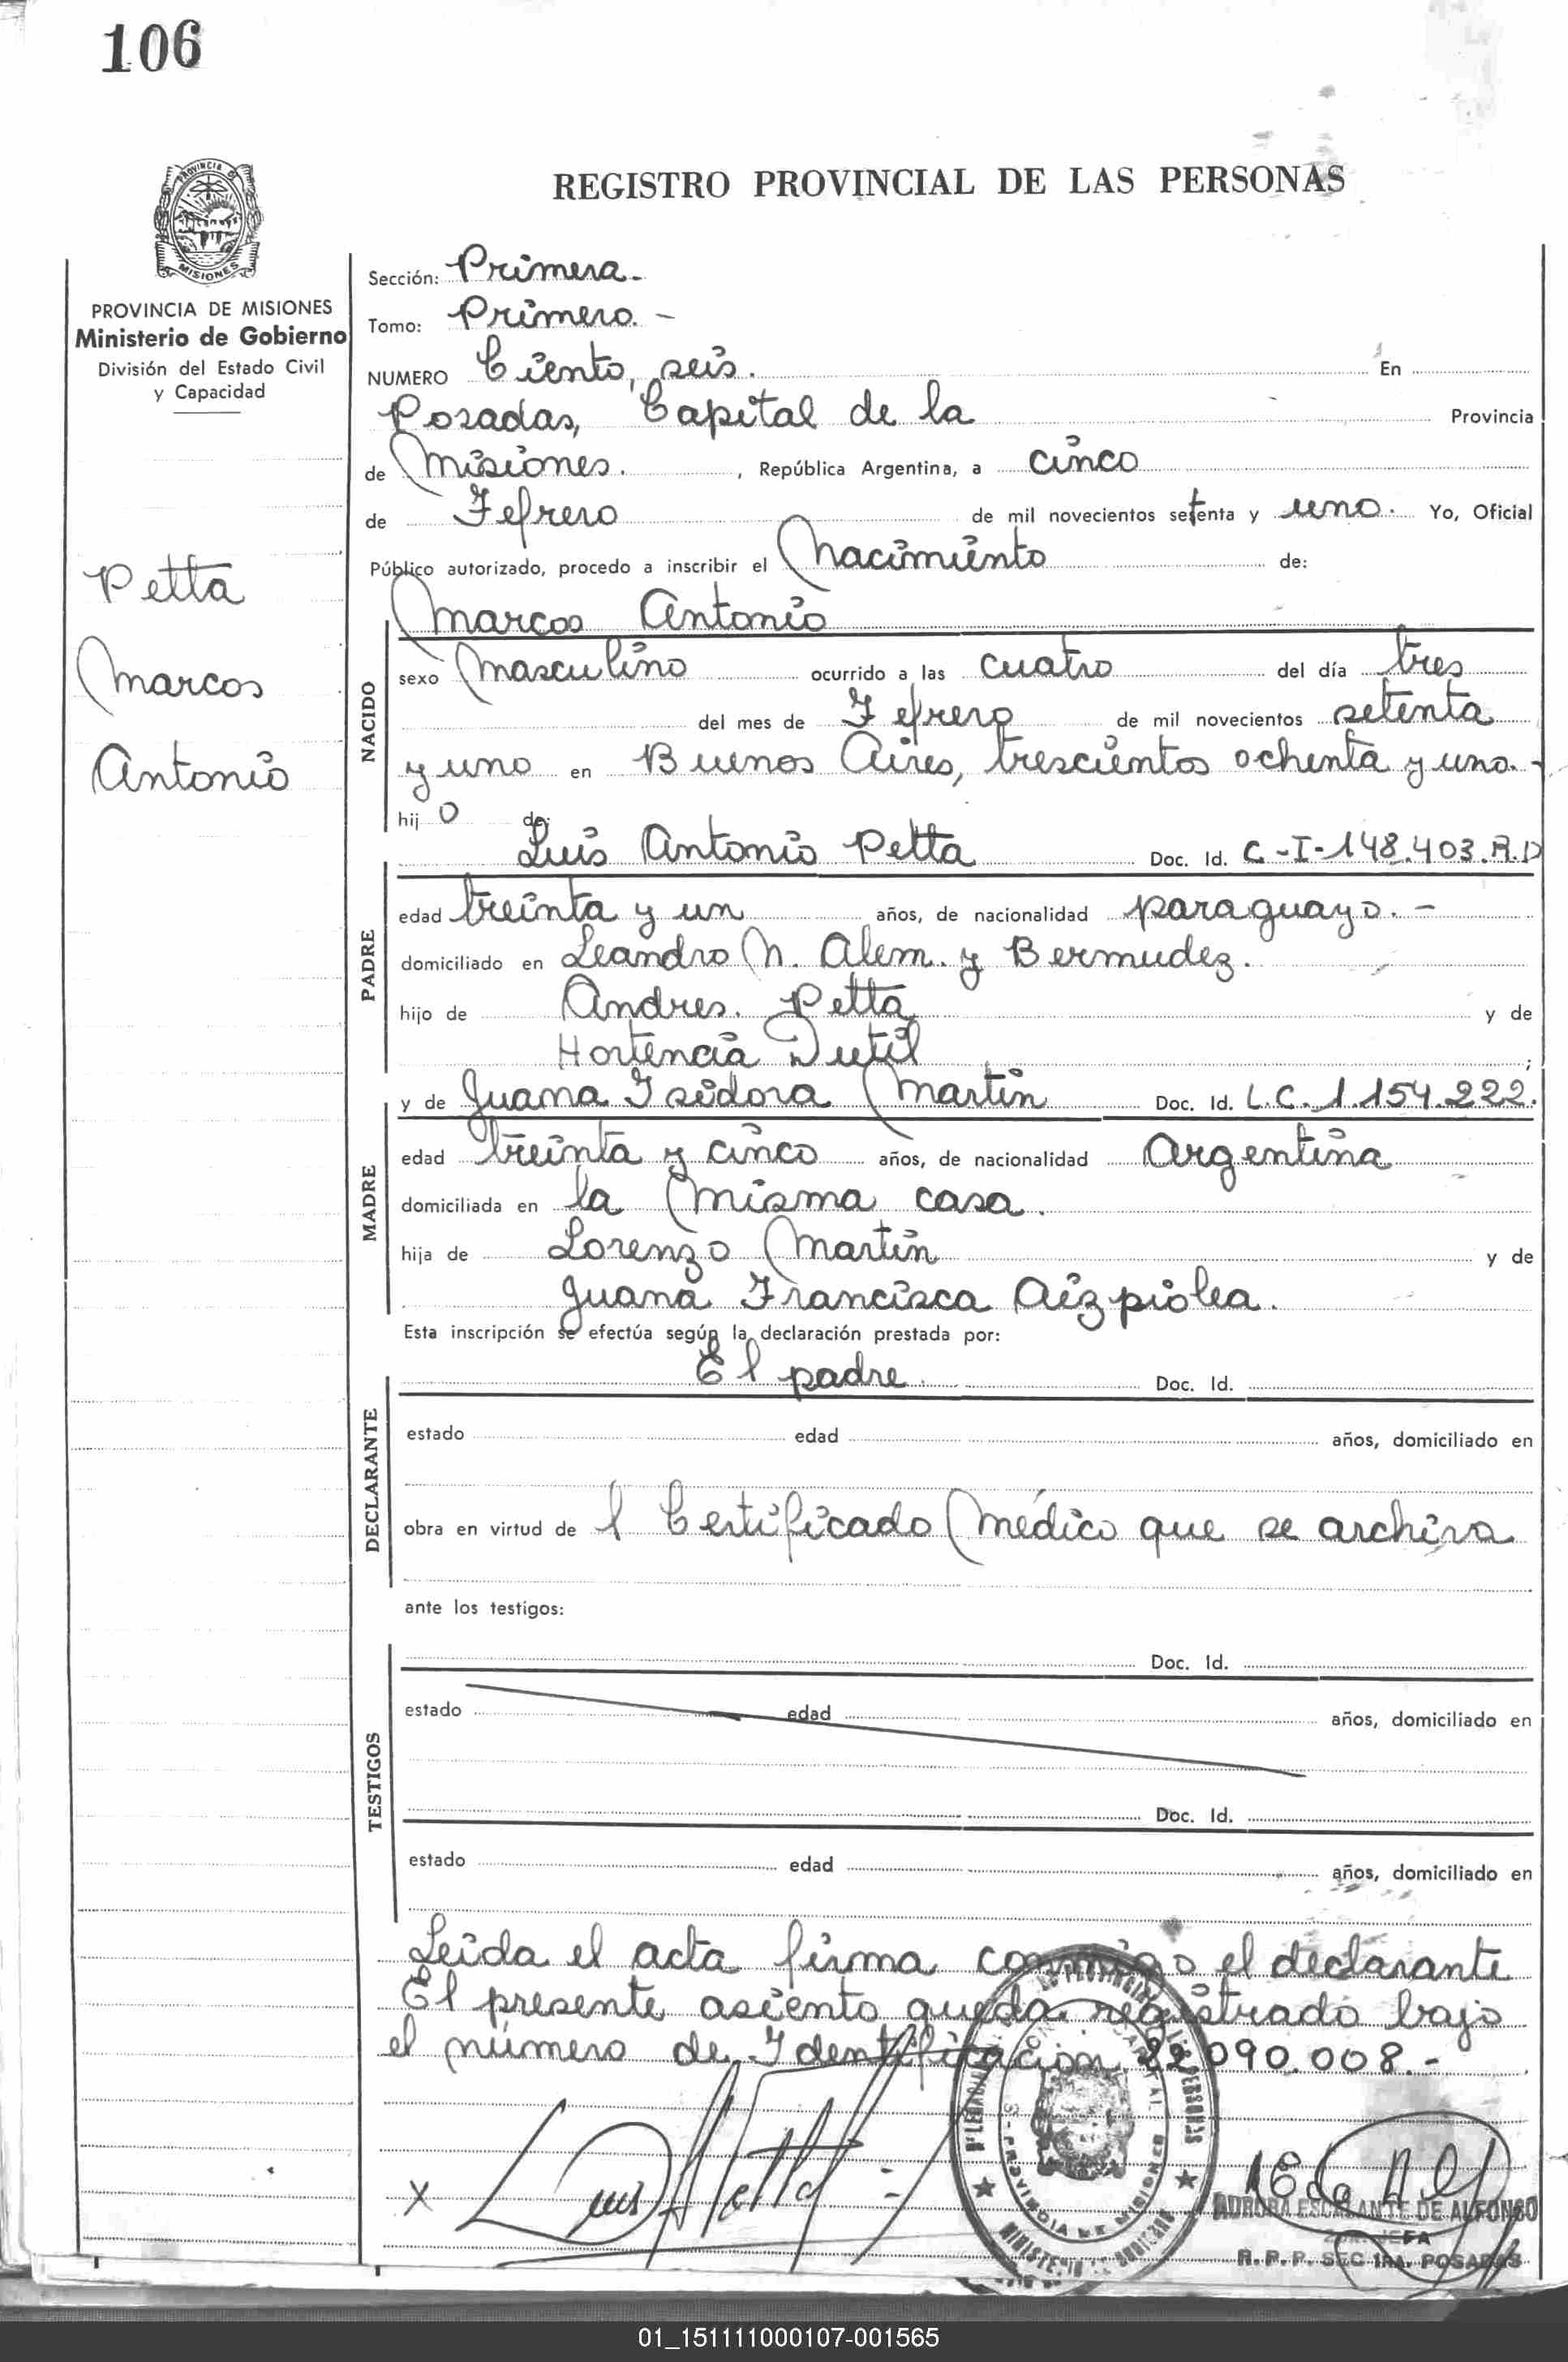 106
REGISTRO PROVINCIAL DE LAS PERSONAS
PROVINCIA DE MISIONES
PROVINCIA DE MISIONES
Ministerio de Gobierno
División del Estado Civil
y Capacidad
Petta
Marcos
Antonio
Sección: Primera.-
Tomo: Primero.-
NUMERO Ciento, seis. En
Posadas, Capital de la Provincia
de Misiones. , República Argentina, a cinco
de Fefrero de mil novecientos setenta y uno. Yo, Oficial
Público autorizado, procedo a inscribir el Nacimiento de:
Marcos Antonio
NACIDO
sexo Masculino ocurrido a las cuatro del día tres
del mes de Fefrero de mil novecientos setenta
y uno en Buenos Aires, trescientos ochenta y uno.-
hijo de:
Luis Antonio Petta Doc. Id. C-I-148.403.R.P
PADRE
edad treinta y un años, de nacionalidad paraguayo.-
domiciliado en Leandro N. Alem. y Bermudez.
hijo de Andres. Petta y de
Hortencia Dutil ;
y de Juana Isidora Martin Doc. Id. L.C. 1.154.222.
MADRE
edad treinta y cinco años, de nacionalidad Argentina
domiciliada en la misma casa.
hija de Lorenzo Martin y de
Juana Francisca Aizpiolea.
Esta inscripción se efectúa según la declaración prestada por:
El padre. Doc. Id.
DECLARANTE
estado edad años, domiciliado en
obra en virtud de l Certificado Médico que se archiva
ante los testigos:
Doc. Id.
TESTIGOS
estado edad años, domiciliado en
Doc. Id.
estado edad años, domiciliado en
Leida el acta firma conmigo el declarante
El presente asiento queda registrado bajo
el número de Identificacion 22.090.008.-
x Luis A Petta
PROVINCIA DE MISIONES
ESCALANTE DE ALFONSO
JEFA
R. P. P. SEC 1RA. POSADAS
01_151111000107-001565